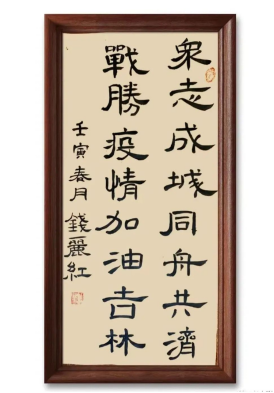 衆志成城同舟共濟
戰勝疫情加油吉林
壬寅春月 錢麗紅